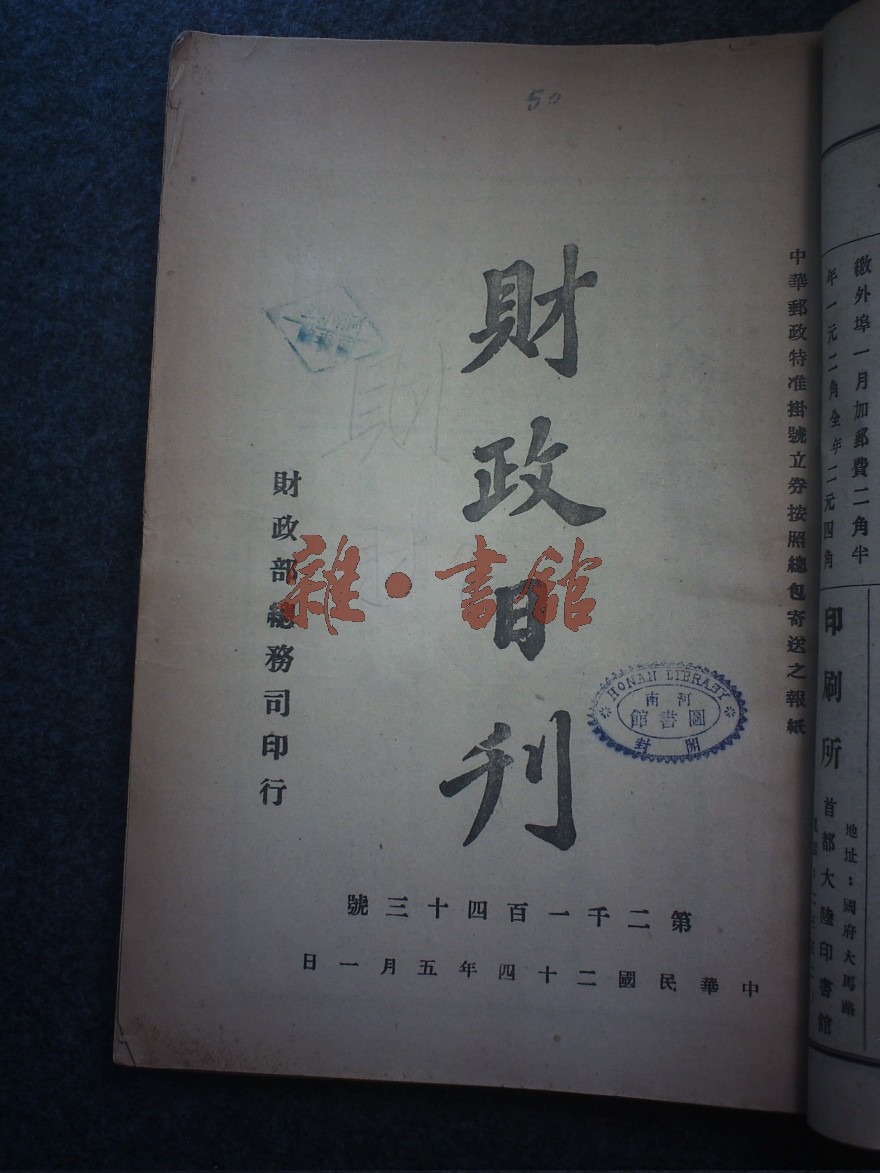 50
中華郵政特准掛號立券按照總包寄送之報紙
財政日刊
財政部總務司印行
第二千一百四十三號
中華民國二十四年五月一日
HONAN LIBRARY
河南
圖書館
開封
財
雜·書館
繳外埠一月加郵費二角半
年一元二角全年二元四角
印刷所
首都大陸印書館
地址：國府大馬路